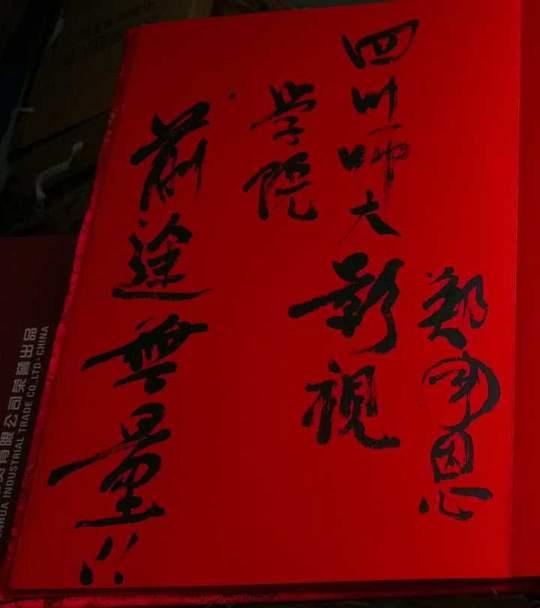 四川师大影视
学院
前途無量!!
郑国恩
有限公司荣誉出品
INDUSTRIAL TRADE CO.,LTD·CHINA